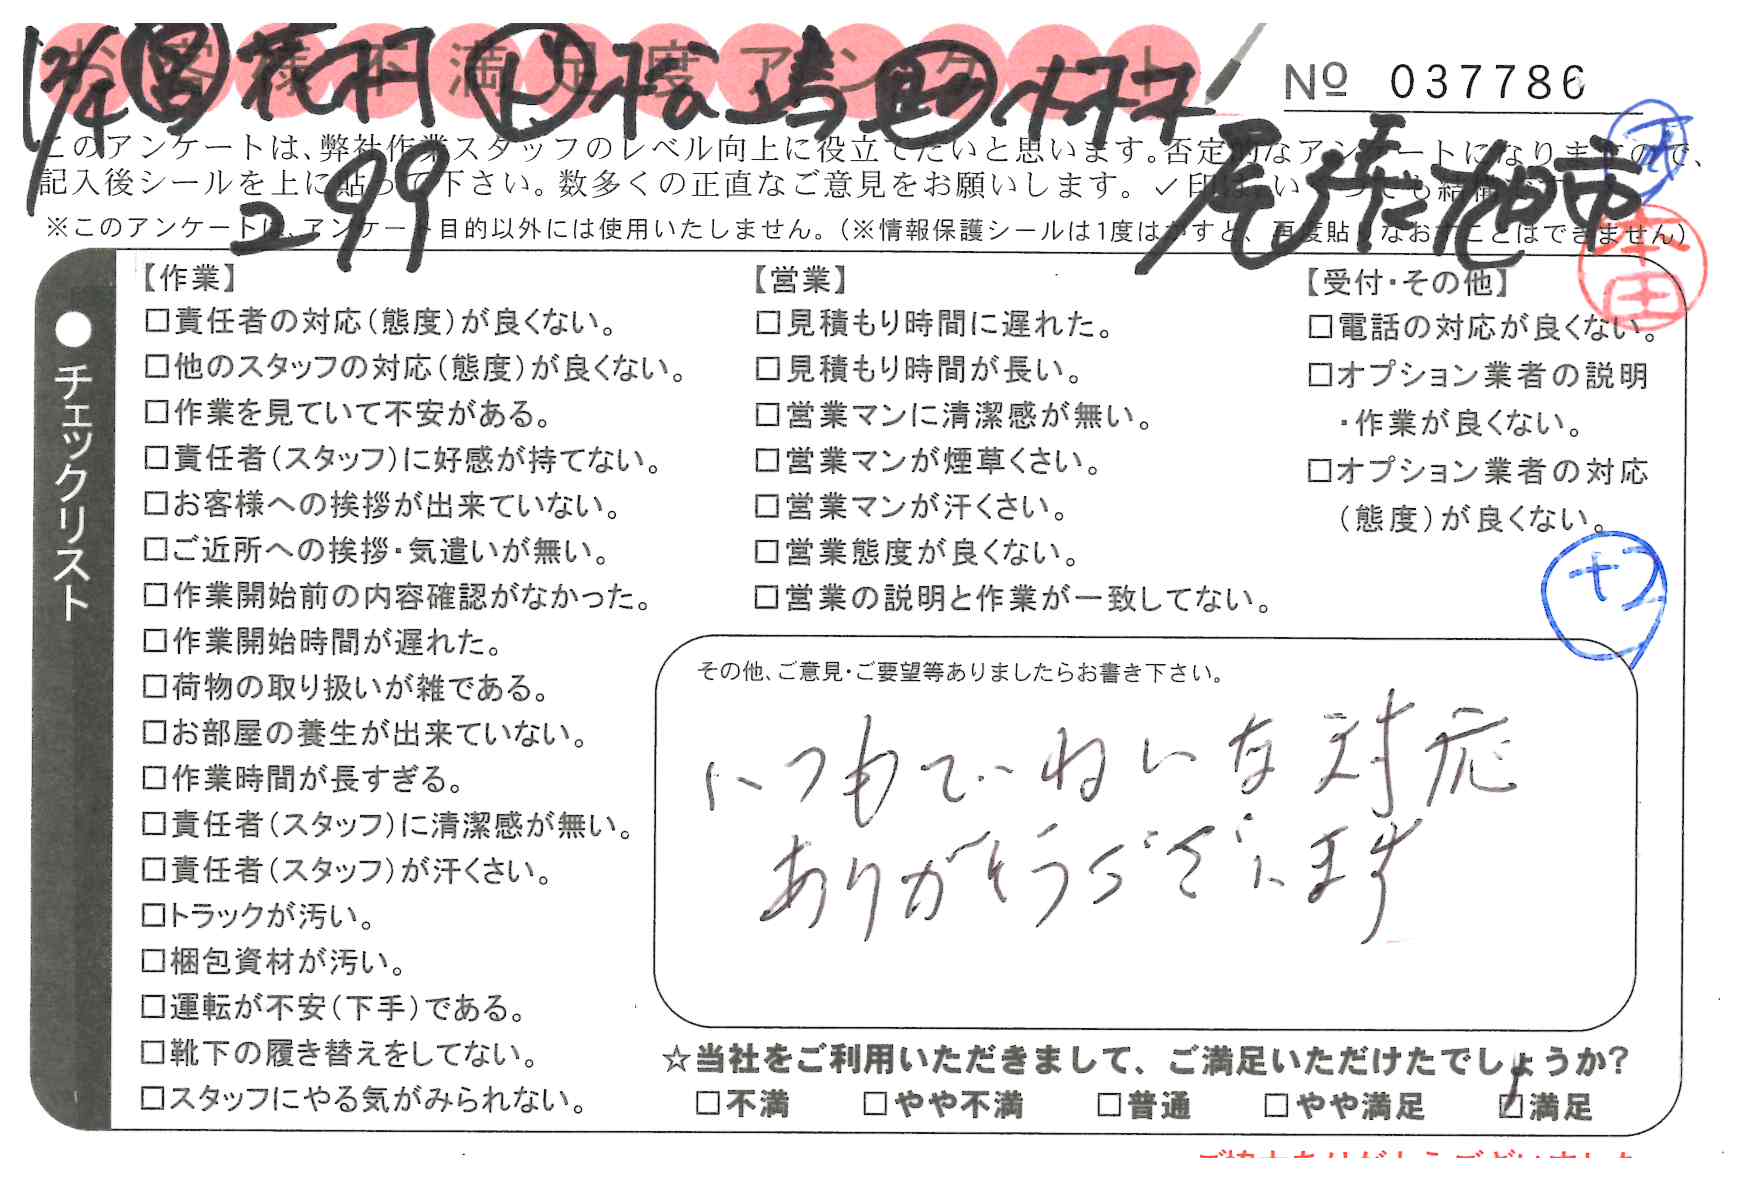 お客様不満足度アンケート
12/4 営 花村 ト 松島 助 村木
№ 037786
このアンケートは、弊社作業スタッフのレベル向上に役立てたいと思います。否定的なアンケートになりますので、
記入後シールを上に貼って下さい。数多くの正直なご意見をお願いします。✓印は、いくつでも結構です。
299
尾張旭市
※このアンケートは、アンケート目的以外には使用いたしません。(※情報保護シールは1度はがすと、再度貼りなおすことはできません)
本田
●チェックリスト
【作業】
□責任者の対応(態度)が良くない。
□他のスタッフの対応(態度)が良くない。
□作業を見ていて不安がある。
□責任者(スタッフ)に好感が持てない。
□お客様への挨拶が出来ていない。
□ご近所への挨拶・気遣いが無い。
□作業開始前の内容確認がなかった。
□作業開始時間が遅れた。
□荷物の取り扱いが雑である。
□お部屋の養生が出来ていない。
□作業時間が長すぎる。
□責任者(スタッフ)に清潔感が無い。
□責任者(スタッフ)が汗くさい。
□トラックが汚い。
□梱包資材が汚い。
□運転が不安(下手)である。
□靴下の履き替えをしてない。
□スタッフにやる気がみられない。
【営業】
□見積もり時間に遅れた。
□見積もり時間が長い。
□営業マンに清潔感が無い。
□営業マンが煙草くさい。
□営業マンが汗くさい。
□営業態度が良くない。
□営業の説明と作業が一致してない。
【受付・その他】
□電話の対応が良くない。
□オプション業者の説明
・作業が良くない。
□オプション業者の対応
(態度)が良くない。
その他、ご意見・ご要望等ありましたらお書き下さい。
いつもていねいな対応
ありがとうございます
☆当社をご利用いただきまして、ご満足いただけたでしょうか?
□不満 □やや不満 □普通 □やや満足 ☑満足